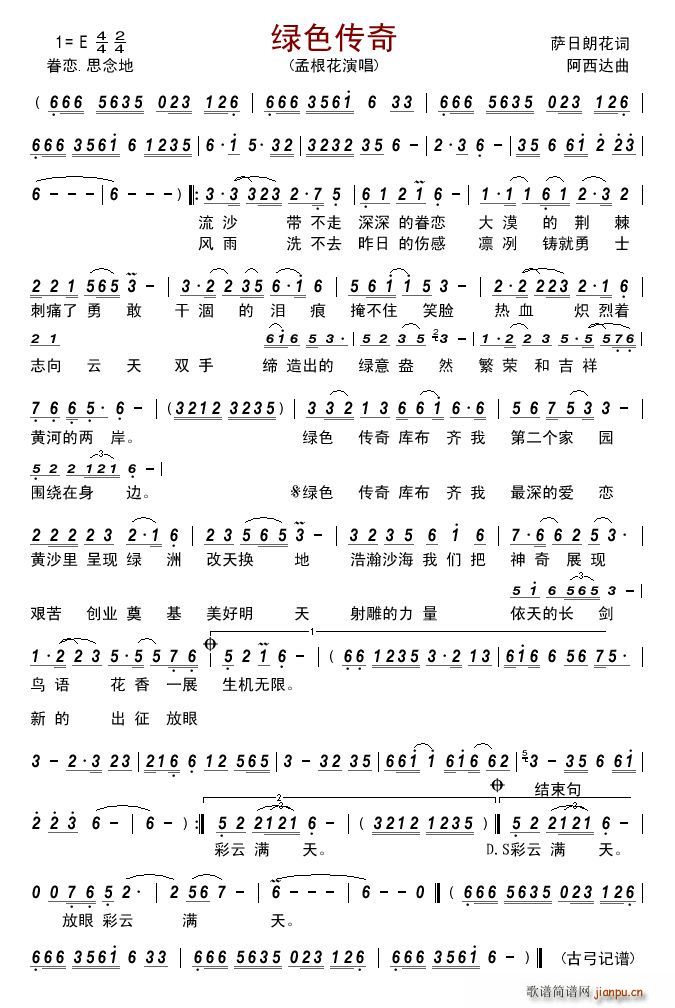 绿色传奇
1= E 4/4 2/4
萨日朗花词
眷恋.思念地
(孟根花演唱)
阿西达曲
( 666 5635 023 126 | 666 3561 6 33 | 666 5635 023 126 |
666 3561 6 1235 | 6·1 5·32 | 3232 35 6 - | 2·3 6 - | 35 6 61 2 23 |
6 - - - | 6 - - - ) ‖: 3·3 323 2·7 5 | 61 2 1 6 - | 1·1 1 61 2·3 2 |
流沙 带不走 深深的眷恋 大漠的荆棘
风雨 洗不去 昨日的伤感 凛冽铸就勇士
2 2 1 565 3 - | 3·2 2 35 6·1 1 | 5 61 1 5 3 - | 2·2 223 2·1 6 |
刺痛了勇敢 干涸的泪痕 掩不住笑脸 热血炽烈着
2 1 616 5 3· | 5 2 35 3 - | 1·2 2 3 5·5 576 |
志向云天双手 缔造出的绿意盎然 繁荣和吉祥
7 6 6 5· 6 - | (3212 3235) | 3 32 13 66 1 6·6 | 5 6 7 53 3 - |
黄河的两岸。 绿色 传奇库布齐我 第二个家园
3
5 2 2 121 6 - |
围绕在身边。 𝄋绿色 传奇库布齐我 最深的爱恋
2 2 2 23 2·1 6 | 23 565 3 - | 3 23 5 61 6 | 7·6 6 25 3· |
黄沙里呈现绿洲 改天换地 浩瀚沙海我们把 神奇展现
3
5 1 6 565 3 - |
艰苦创业奠基 美好明天 射雕的力量 依天的长剑
1
1·2 2 3 5·5 576 | 5 21 6 - | (66 1235 3·2 13 | 616 6 56 75· |
鸟语花香一展 生机无限。
新的出征放眼
3 - 2·3 23 | 216 6 12 565 | 3 - 32 35 | 661 1 616 62 | 3 - 35 66 |
结束句
2
2 2 3 6 - | 6 - ) :‖ 5 2 2121 6 - | (3212 1235) ‖ 5 2 2121 6 - |
彩云满天。 D.S彩云满天。
0 0 7 6 5 2· | 2 56 7 - | 6 - - - | 6 - 0 0 ‖ ( 666 5635 023 126 |
放眼彩云满天。
666 3561 6 33 | 666 5635 023 126 | 666 3561 23 216 | 6 - - - ) ‖ (古弓记谱)
歌谱简谱网
jianpu.cn